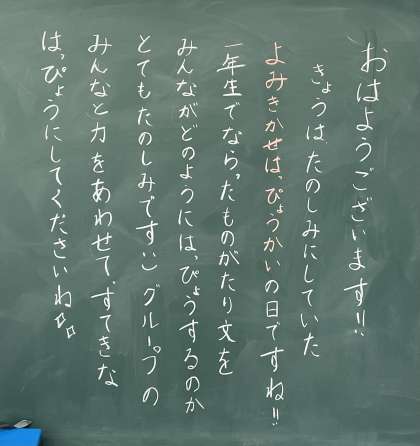 おはようございます!!
きょうは、たのしみにしていた
よみきかせはっぴょうかいの日ですね!!
一年生でならったものがたり文を
みんながどのようにはっぴょうするのか
とてもたのしみです:) グループの
みんなと力をあわせて、すてきな
はっぴょうにしてくださいね✧✧